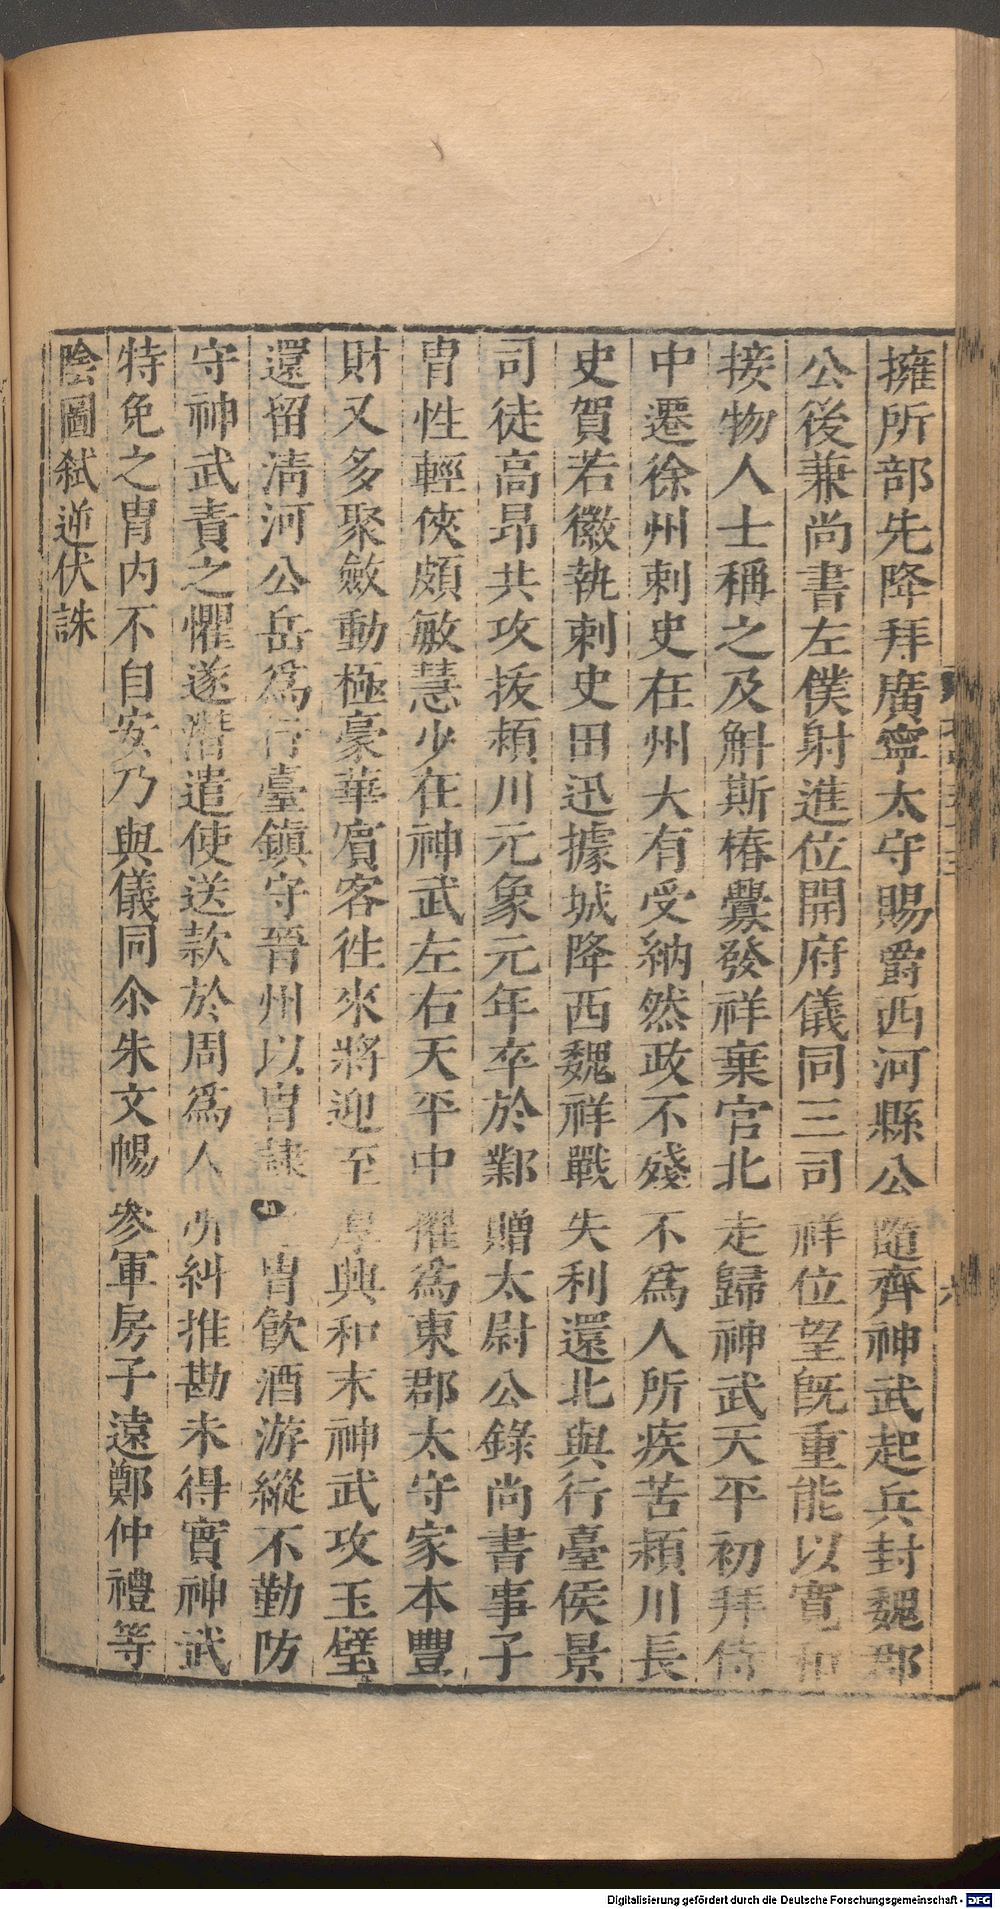 擁所部先降拜廣寧太守賜爵西河縣公隨齊神武起兵封魏郡
公後兼尚書左僕射進位開府儀同三司祥位望旣重能以寬和
接物人士稱之及斛斯椿釁發祥棄官北走歸神武天平初拜侍
中遷徐州刺史在州大有受納然政不殘不爲人所疾苦潁川長
史賀若徽執刺史田迅據城降西魏祥戰失利還北與行臺侯景
司徒高昂共攻拔潁川元象元年卒於鄴贈太尉公錄尚書事子
胄性輕俠頗敏慧少在神武左右天平中擢爲東郡太守家本豐
財又多聚斂動極豪華賓客徃來將迎至厚興和末神武攻玉壁
還留淸河公岳爲行臺鎭守晉州以胄隷胄飮酒游縱不勤防
守神武責之懼遂潛遣使送款於周爲人所糾推勘未得實神武
特免之胄内不自安乃與儀同尒朱文暢參軍房子遠鄭仲禮等
陰圖弒逆伏誅
Digitalisierung gefördert durch die Deutsche Forschungsgemeinschaft - DFG